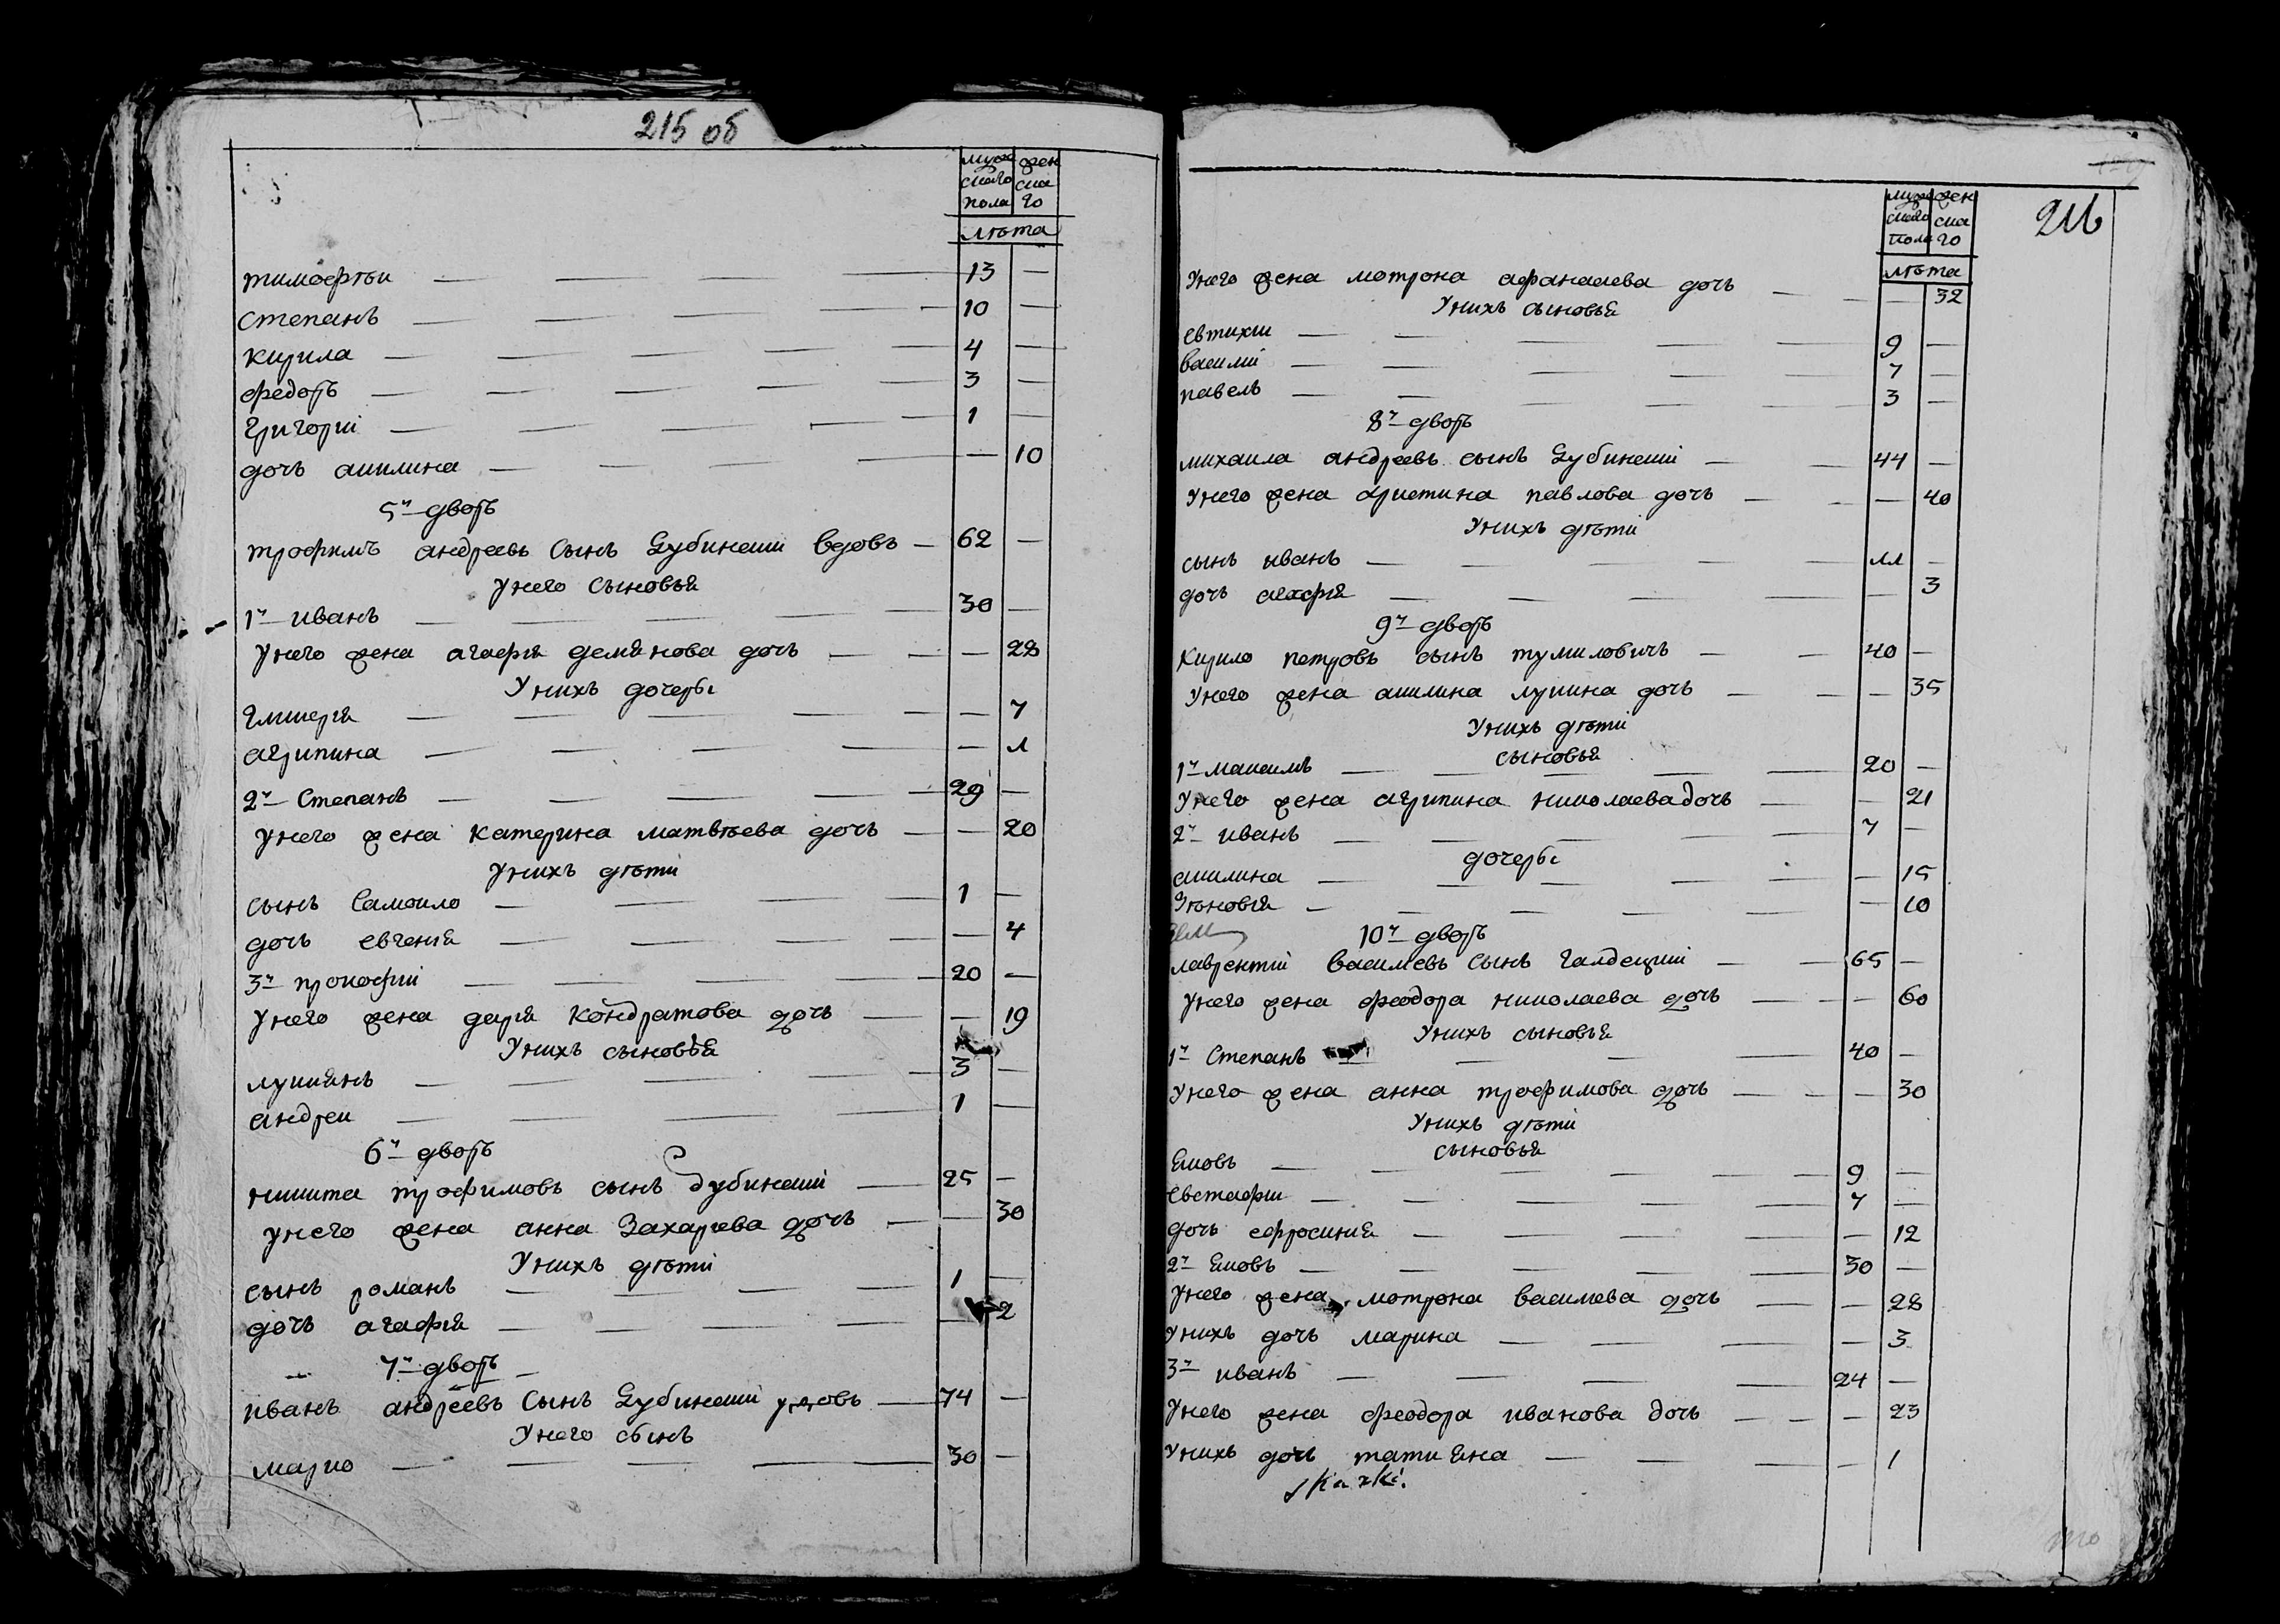 215 об
муж женскаго скаго
пола
лѣта
тимофѣи — 13 —
степанъ — 10 —
кирила — 4 —
федоръ — 3 —
григорїй — 1 —
дочь акилина — — 10
5й дворъ
трофимъ андреевъ сынъ дубинскии вдовъ — 62 —
у него сыновья
1й иванъ — 30 —
у него жена агафія демянова дочь — — 28
у нихъ дочери
гликерія — — 7
агрипина — — л
2й степанъ — 29 —
у него жена катерина матвѣева дочь — — 20
у нихъ дѣти
сынъ самоило — 1 —
дочь евгенія — — 4
3й прокофїи — 20 —
у него жена дарія кондратова дочь — — 19
у нихъ сыновья
лукіянъ — 3 —
андреи — 1 —
6й дворъ
никита трофимовъ сынъ дубинскиї — 25 —
у него жена анна захариева дочь — — 30
у нихъ дѣти
сынъ романъ — 1 —
дочь агафія — — 2
7й дворъ
иванъ андреевъ сынъ дубинскии удовъ — 74 —
у него сынъ
марко — 30 —
216
муж женскаго скаго
пола
лѣта
у него жена мотрона афанасиева дочь — — 32
у нихъ сыновья
евтихии — 9 —
василиї — 7 —
павелъ — 3 —
8й дворъ
михаила андреевъ сынъ дубинскиї — 44 —
у него жена христина павлова дочь — — 40
у нихъ дѣти
сынъ иванъ — лл —
дочь агафія — — 3
9й дворъ
кирило петровъ сынъ тумиловичъ — 40 —
у него жена акилина лукина дочь — — 35
у нихъ дѣти
сыновья
1й максимъ — 20 —
у него жена агрипина николаева дочь — — 21
2й иванъ — 7 —
дочери
акилина — — 15
зѣновія — — 10
10й дворъ
лаврентиї василиевъ сынъ галдецкиї — 65 —
у него жена феодора николаева дочь — — 60
у нихъ сыновья
1й степанъ — 40 —
у него жена анна трофимова дочь — — 30
у нихъ дѣти
сыновья
яковъ — 9 —
евстафии — 7 —
дочь ефросинія — — 12
2й яковъ — 30 —
у него жена мотрона василиева дочь — — 28
у нихъ дочь марина — — 3
3й иванъ — 24 —
у него жена феодора иванова дочь — — 23
у нихъ дочь татияна — — 1